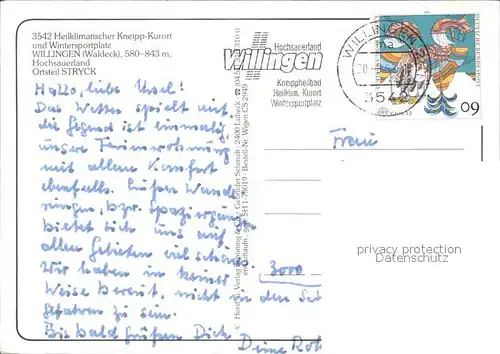 3542 Heilklimatischer Kneipp-Kurort
und Wintersportplatz
WILLINGEN (Waldeck), 580–843 m,
Hochsauerland
Ortsteil STRYCK
Hallo, liebe Ursel!
Das Wetter spielt mit,
die Gegend ist einmalig,
unsere Ferienwohnung
mit allem Komfort
ebenfalls. Außer Wande-
rungen, bzw. Spaziergänge
bietet sich uns auf
allen Gebieten viel schönes.
Wir haben in keiner
Weise bereut, nicht in den Sü
gefahren zu sein.
Bis bald grüßen Dich
Deine
Hochsauerland
Willingen
Kneippheilbad
Heilklim. Kurort
Wintersportplatz
WILLINGEN
3542
60
Frau
3000
privacy protection
Datenschutz